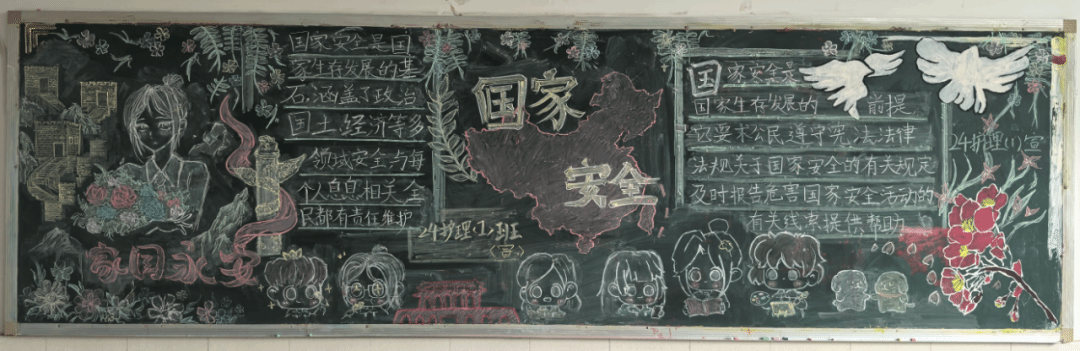 国家安全是国
家生存发展的基
石,涵盖了政治
国土、经济等多
领域安全与每
个人息息相关,全
民都有责任维护
家国永安
国家
安全
24护理(1)班
国家安全是
国家生存发展的 前提
它要求公民遵守宪法法律
法规关于国家安全的有关规定
及时报告危害国家安全活动的
有关线索提供帮助
24护理(1)宣